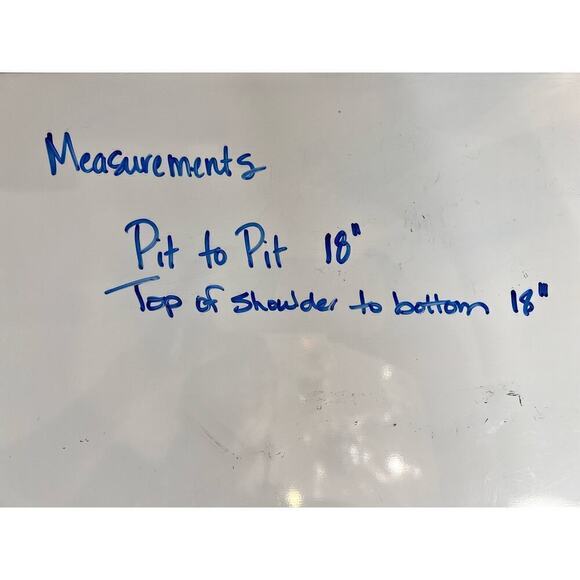 Measurements
Pit to Pit 18"
Top of shoulder to bottom 18"